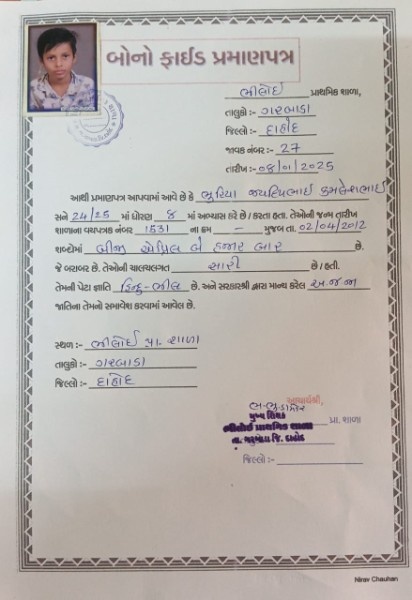 બોનો ફાઈડ પ્રમાણપત્ર
ભીલોઈ પ્રાથમિક શાળા,
તાલુકો :- ગરબાડા
જિલ્લો :- દાહોદ
જાવક નંબર :- 27
તારીખ :- 08/01/2025
આથી પ્રમાણપત્ર આપવામાં આવે છે કે ભુરિયા જયદિપભાઈ કમલેશભાઈ
સને 24/25 માં ધોરણ 8 માં અભ્યાસ કરે છે / કરતા હતા. તેઓની જન્મ તારીખ
શાળાના વયપત્રક નંબર 1531 ના ક્રમ - મુજબ તા. 02/04/2012
શબ્દોમાં બીજી એપ્રિલ બે હજાર બાર છે.
જે બરાબર છે. તેઓની ચાલચલગત સારી છે / હતી.
તેમની પેટા જ્ઞાતિ હિન્દુ-ભીલ છે. અને સરકારશ્રી દ્વારા માન્ય કરેલ અ.જ.જા
જાતિના તેમનો સમાવેશ કરવામાં આવેલ છે.
સ્થળ :- ભીલોઈ પ્રા. શાળા
તાલુકો :- ગરબાડા
જિલ્લો :- દાહોદ
આચાર્યશ્રી,
મુખ્ય શિક્ષક
ભીલોઈ પ્રાથમિક શાળા પ્રા. શાળા
તા. ગરબાડા જિ. દાહોદ
જિલ્લો :-
Nirav Chauhan